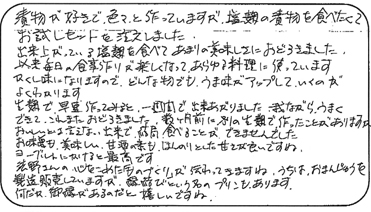 漬物が好きで色々と作っていますが、塩麹の漬物を食べたくて
お試しセットを注文しました。
出来上がっている塩麹を食べてあまりの美味しさにおどろきました。
以来毎日の食事作りが楽しくなってあらゆる料理に使っています
かくし味になりますので、どんな物でも、うま味がアップしていくのが
よくわかります
生麹で、早速作ってみると、一週間で出来あがりました 我ながら、うまく
できて、これまたおどろきました。数ヶ月前に別の生麹で作ったことがありますが
おいしいとは言えない出来で、結局食べることができませんでした
お味噌も、美味しい、甘酒の素も、ほんのりとした甘さが良いですね。
ヨーグルトにかけると最高です
心をこめたものづくりが伝わってきますね。うちは、おまんじゅうを
製造販売していますが、という名のプリンもあります。
何だか、御縁があるのだと嬉しいですね。